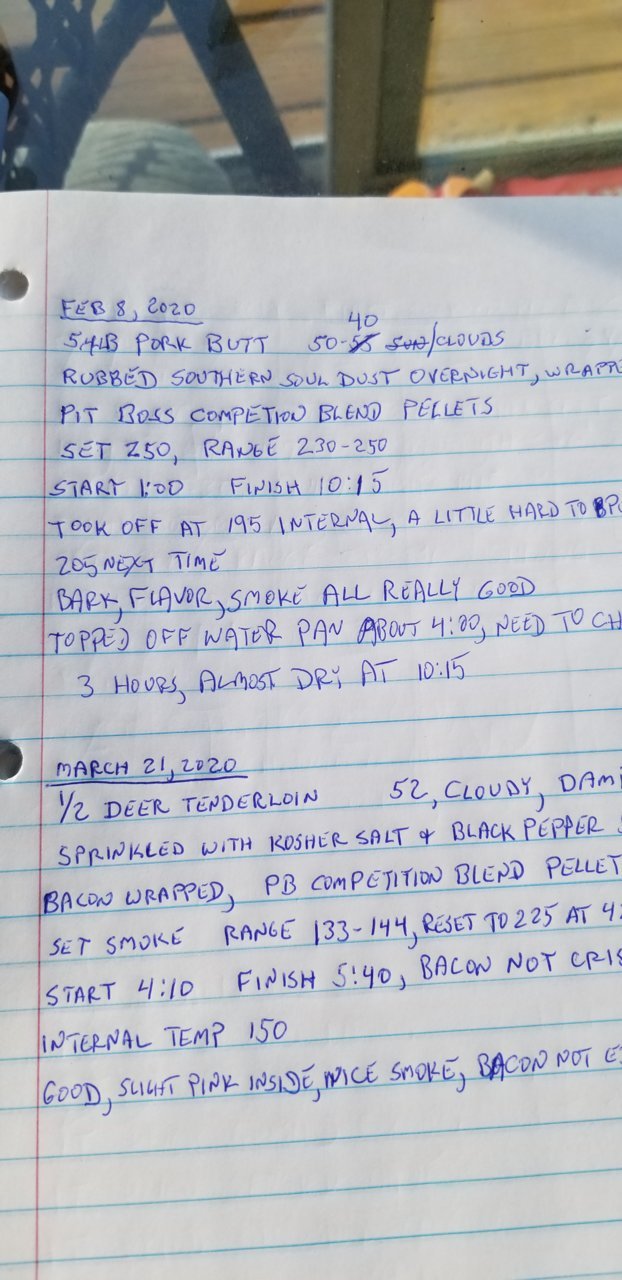 FEB 8, 2020
40
5.4LB PORK BUTT 50-55 SUN/CLOUDS
RUBBED SOUTHERN SOUL DUST OVERNIGHT, WRAPPE
PIT BOSS COMPETION BLEND PELLETS
SET 250, RANGE 230-250
START 1:00 FINISH 10:15
TOOK OFF AT 195 INTERNAL, A LITTLE HARD TO
205 NEXT TIME
BARK, FLAVOR, SMOKE ALL REALLY GOOD
TOPPED OFF WATER PAN ABOUT 4:00, NEED TO CH
3 HOURS, ALMOST DRY AT 10:15
MARCH 21, 2020
1/2 DEER TENDERLOIN 52, CLOUDY, DAM
SPRINKLED WITH KOSHER SALT & BLACK PEPPER
BACON WRAPPED, PB COMPETITION BLEND PELLET
SET SMOKE RANGE 133-144, RESET TO 225 AT 4
START 4:10 FINISH 5:40, BACON NOT CRIS
INTERNAL TEMP 150
GOOD, SLIGHT PINK INSIDE, NICE SMOKE, BACON NOT E